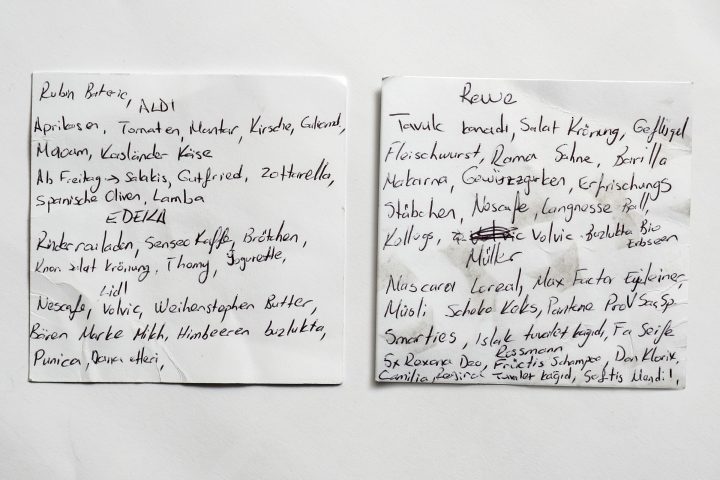 Rubin Baterie,
ALDI
Aprikosen, Tomaten, Mantar, Kirsche,
Maoam, Kasländer Käse
Ab Freitag → Salakis, Gutfried, Zottarella,
Spanische Oliven, Lamba
EDEKA
Rinderrouladen, Senseo Kaffe, Brötchen,
Knorr Salat Krönung, Thomy, Jogurette,
Lidl
Nescafe, Volvic, Weihenstephen Butter,
Bären Marke Milch, Himbeeren buzlukta,
Punica, Dana etleri,
Rewe
Tavuk kanadı, Salat Krönung, Geflügel
Fleischwurst, Rama Sahne, Barilla
Makarna, Gewürzgurken, Erfrischungs
Stäbchen, Nescafe, Langnese
Kellogs, Volvic - Buzlukta Bio
Erbseen
Müller
Mascara Loreal, Max Factor Eyeleiner,
Müsli Schoko Koks, Pantene ProV Saç Sp.
Smarties, Islak tuvalet kağıd, Fa Seife
5x Rexona Deo,
Rossmann
Früctis Schampoo, Dan Klorix,
Camilia, Tuvalet kağıd, Softis Mendil,